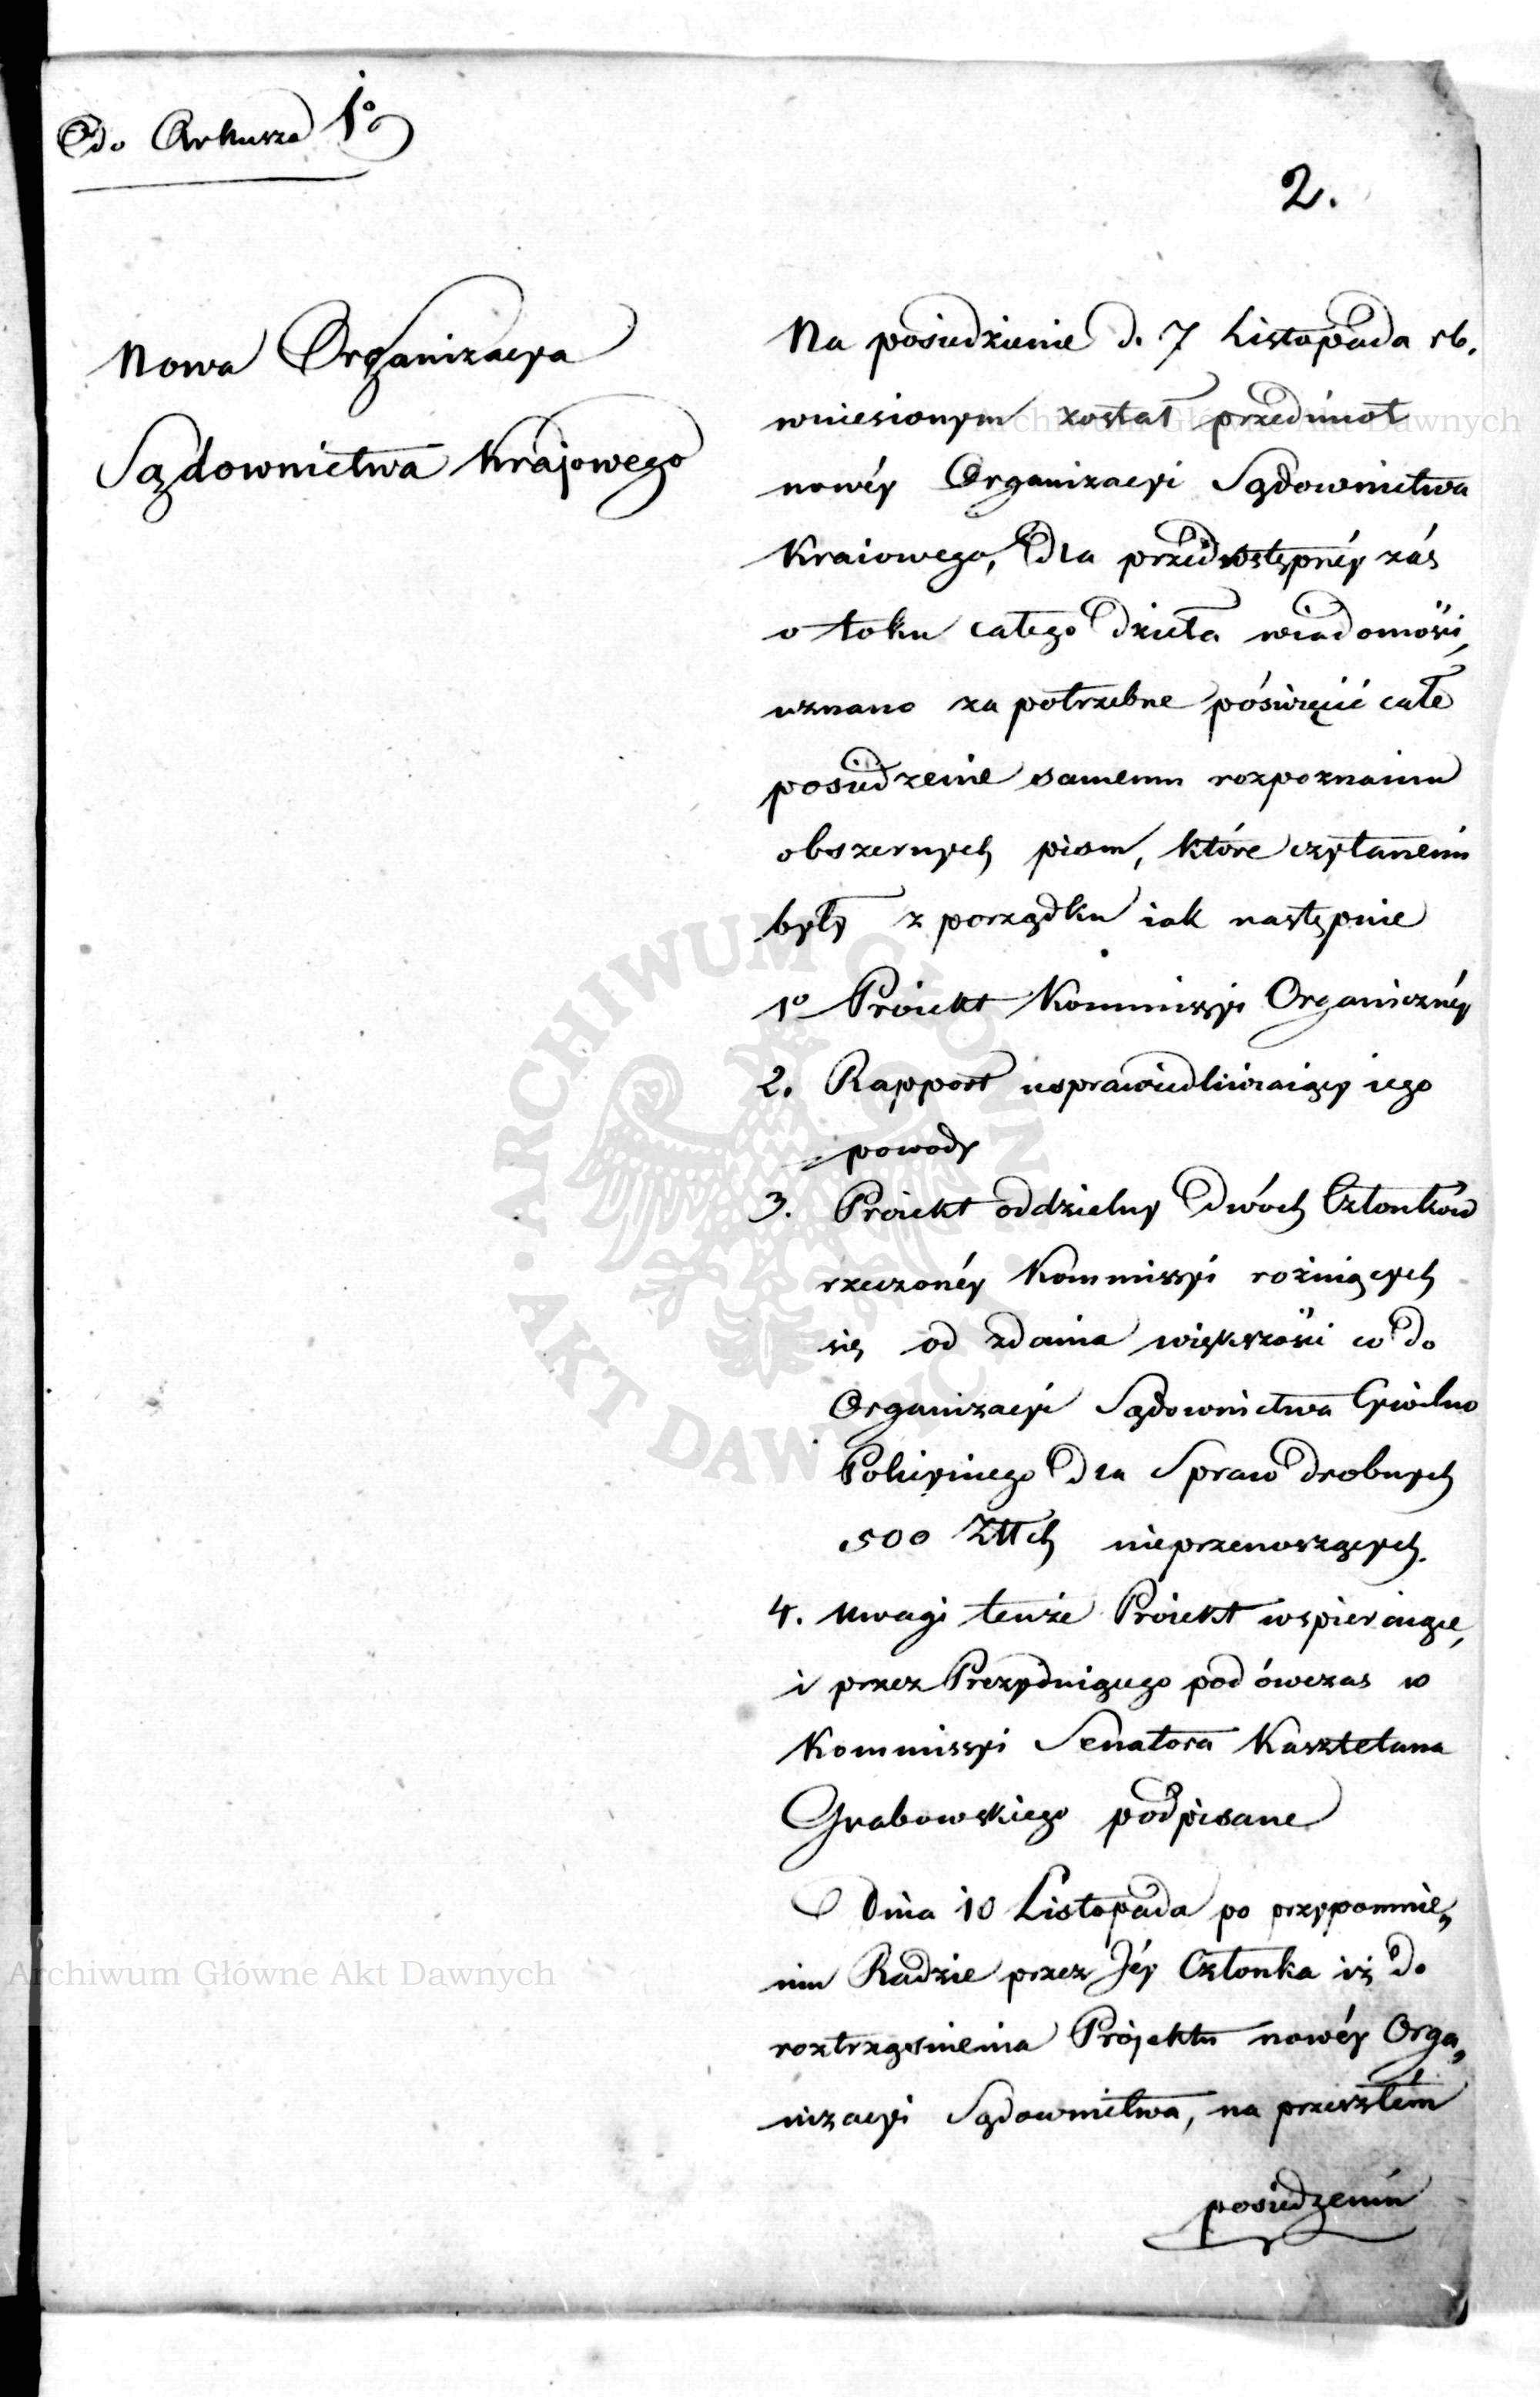 Do Arkusza 1º
2.
Nowa Organizacya
Sądownictwa Krajowego
Na posiedzienie d. 7 Listopada rb.
wniesionym został przedmiot
nowéy Organizacyi Sądownictwa
Kraiowego, dla przedwstępnéy zaś
o toku całego dzieła wiadomości,
uznano za potrzebne poświęcić całe
posiedzenie samemu rozpoznaniu
obszernych pism, które czytanemi
były z porządku iak następuie
1º Proiekt Kommissyi Organicznéy
2. Rapport usprawiedliwiaiący iego
powody
3. Proiekt oddzielny dwóch Członków
rzeczonéy Kommissyi rożniących
się od zdania większości co do
Organizacyi Sądownictwa Cywilno
Policyinego dla Spraw drobnych
500 Złłch nieprzenoszących.
4. Uwagi tenże Proiekt wspieraiące,
i przez Prezyduiącego podówczas w
Kommissyi Senatora Kasztelana
Grabowskiego podpisane
Dnia 10 Listopada po przypomnie„
niu Radzie przez Jéy Członka iż do
roztrząśnienia Projektu nowéy Orga„
nizacyi Sądownictwa, na przeszłém
posiedzeniu
Archiwum Główne Akt Dawnych
Archiwum Główne Akt Dawnych
· ARCHIWUM GŁÓWNE · AKT DAWNYCH